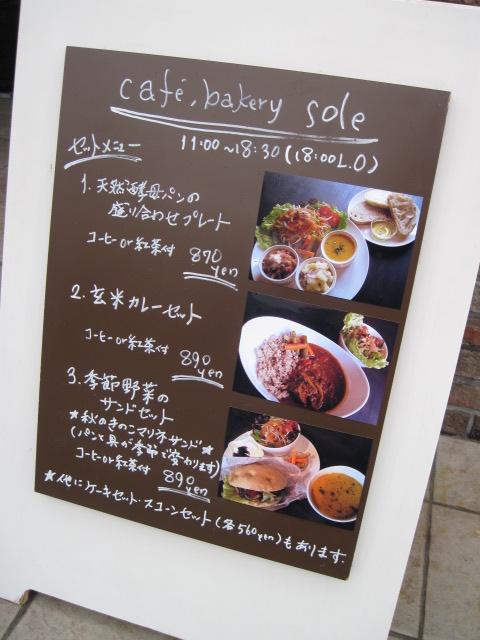 café, bakery sole
11:00~18:30(18:00L.O)
セットメニュー
1. 天然酵母パンの
盛り合わせプレート
コーヒー or 紅茶付 870 yen
2. 玄米カレーセット
コーヒー or 紅茶付 890 yen
3. 季節野菜の
サンドセット
★秋のきのこマリネサンド★
(パンと具が季節で変わります)
コーヒー or 紅茶付 890 yen
★他にケーキセット・スコーンセット(各560yen)もあります.